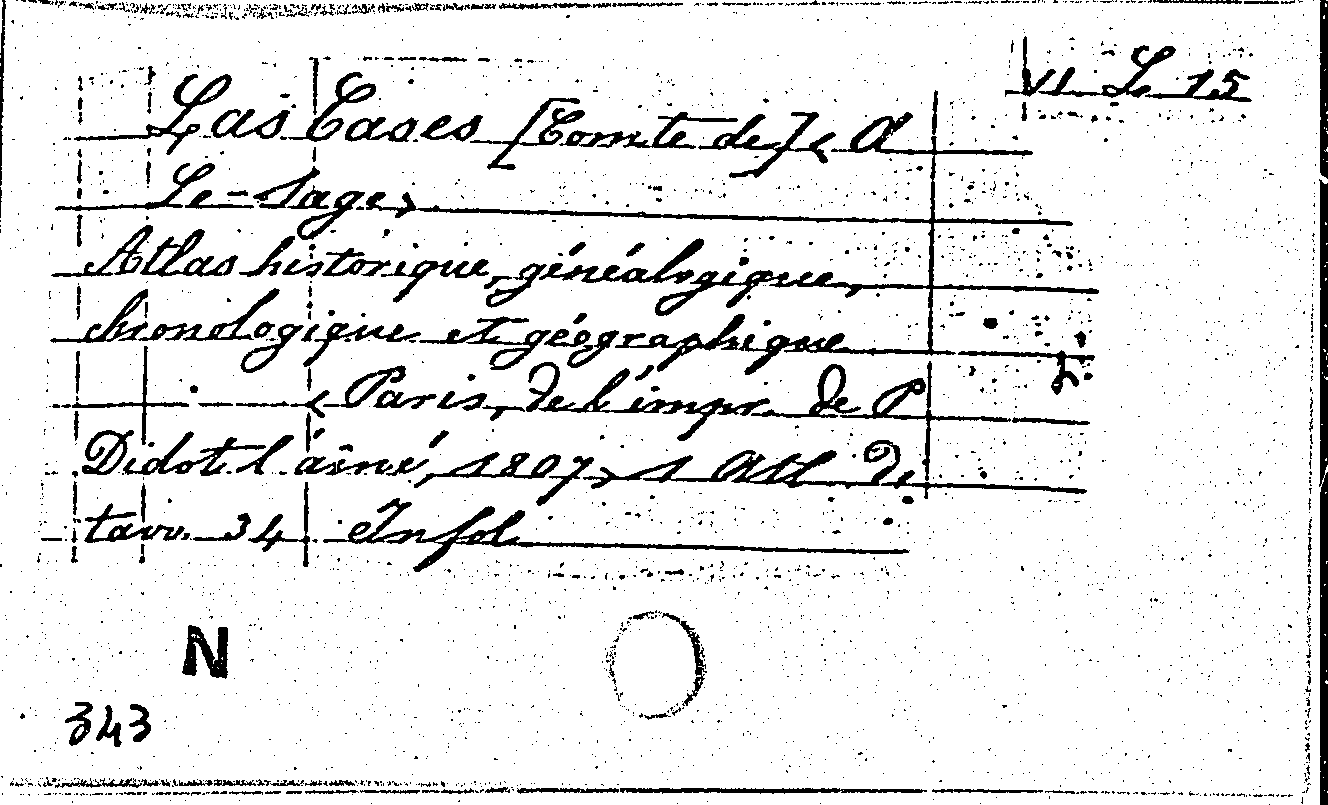 VI L 15
Las Cases [Comte de] < A
Le-Sage >
Atlas historique, généalogique,
chronologique et géographique
< Paris, de l'impr. de P
Didot l'aîné, 1807 > 1 Atl di
tavv. 34 In fol
N
343